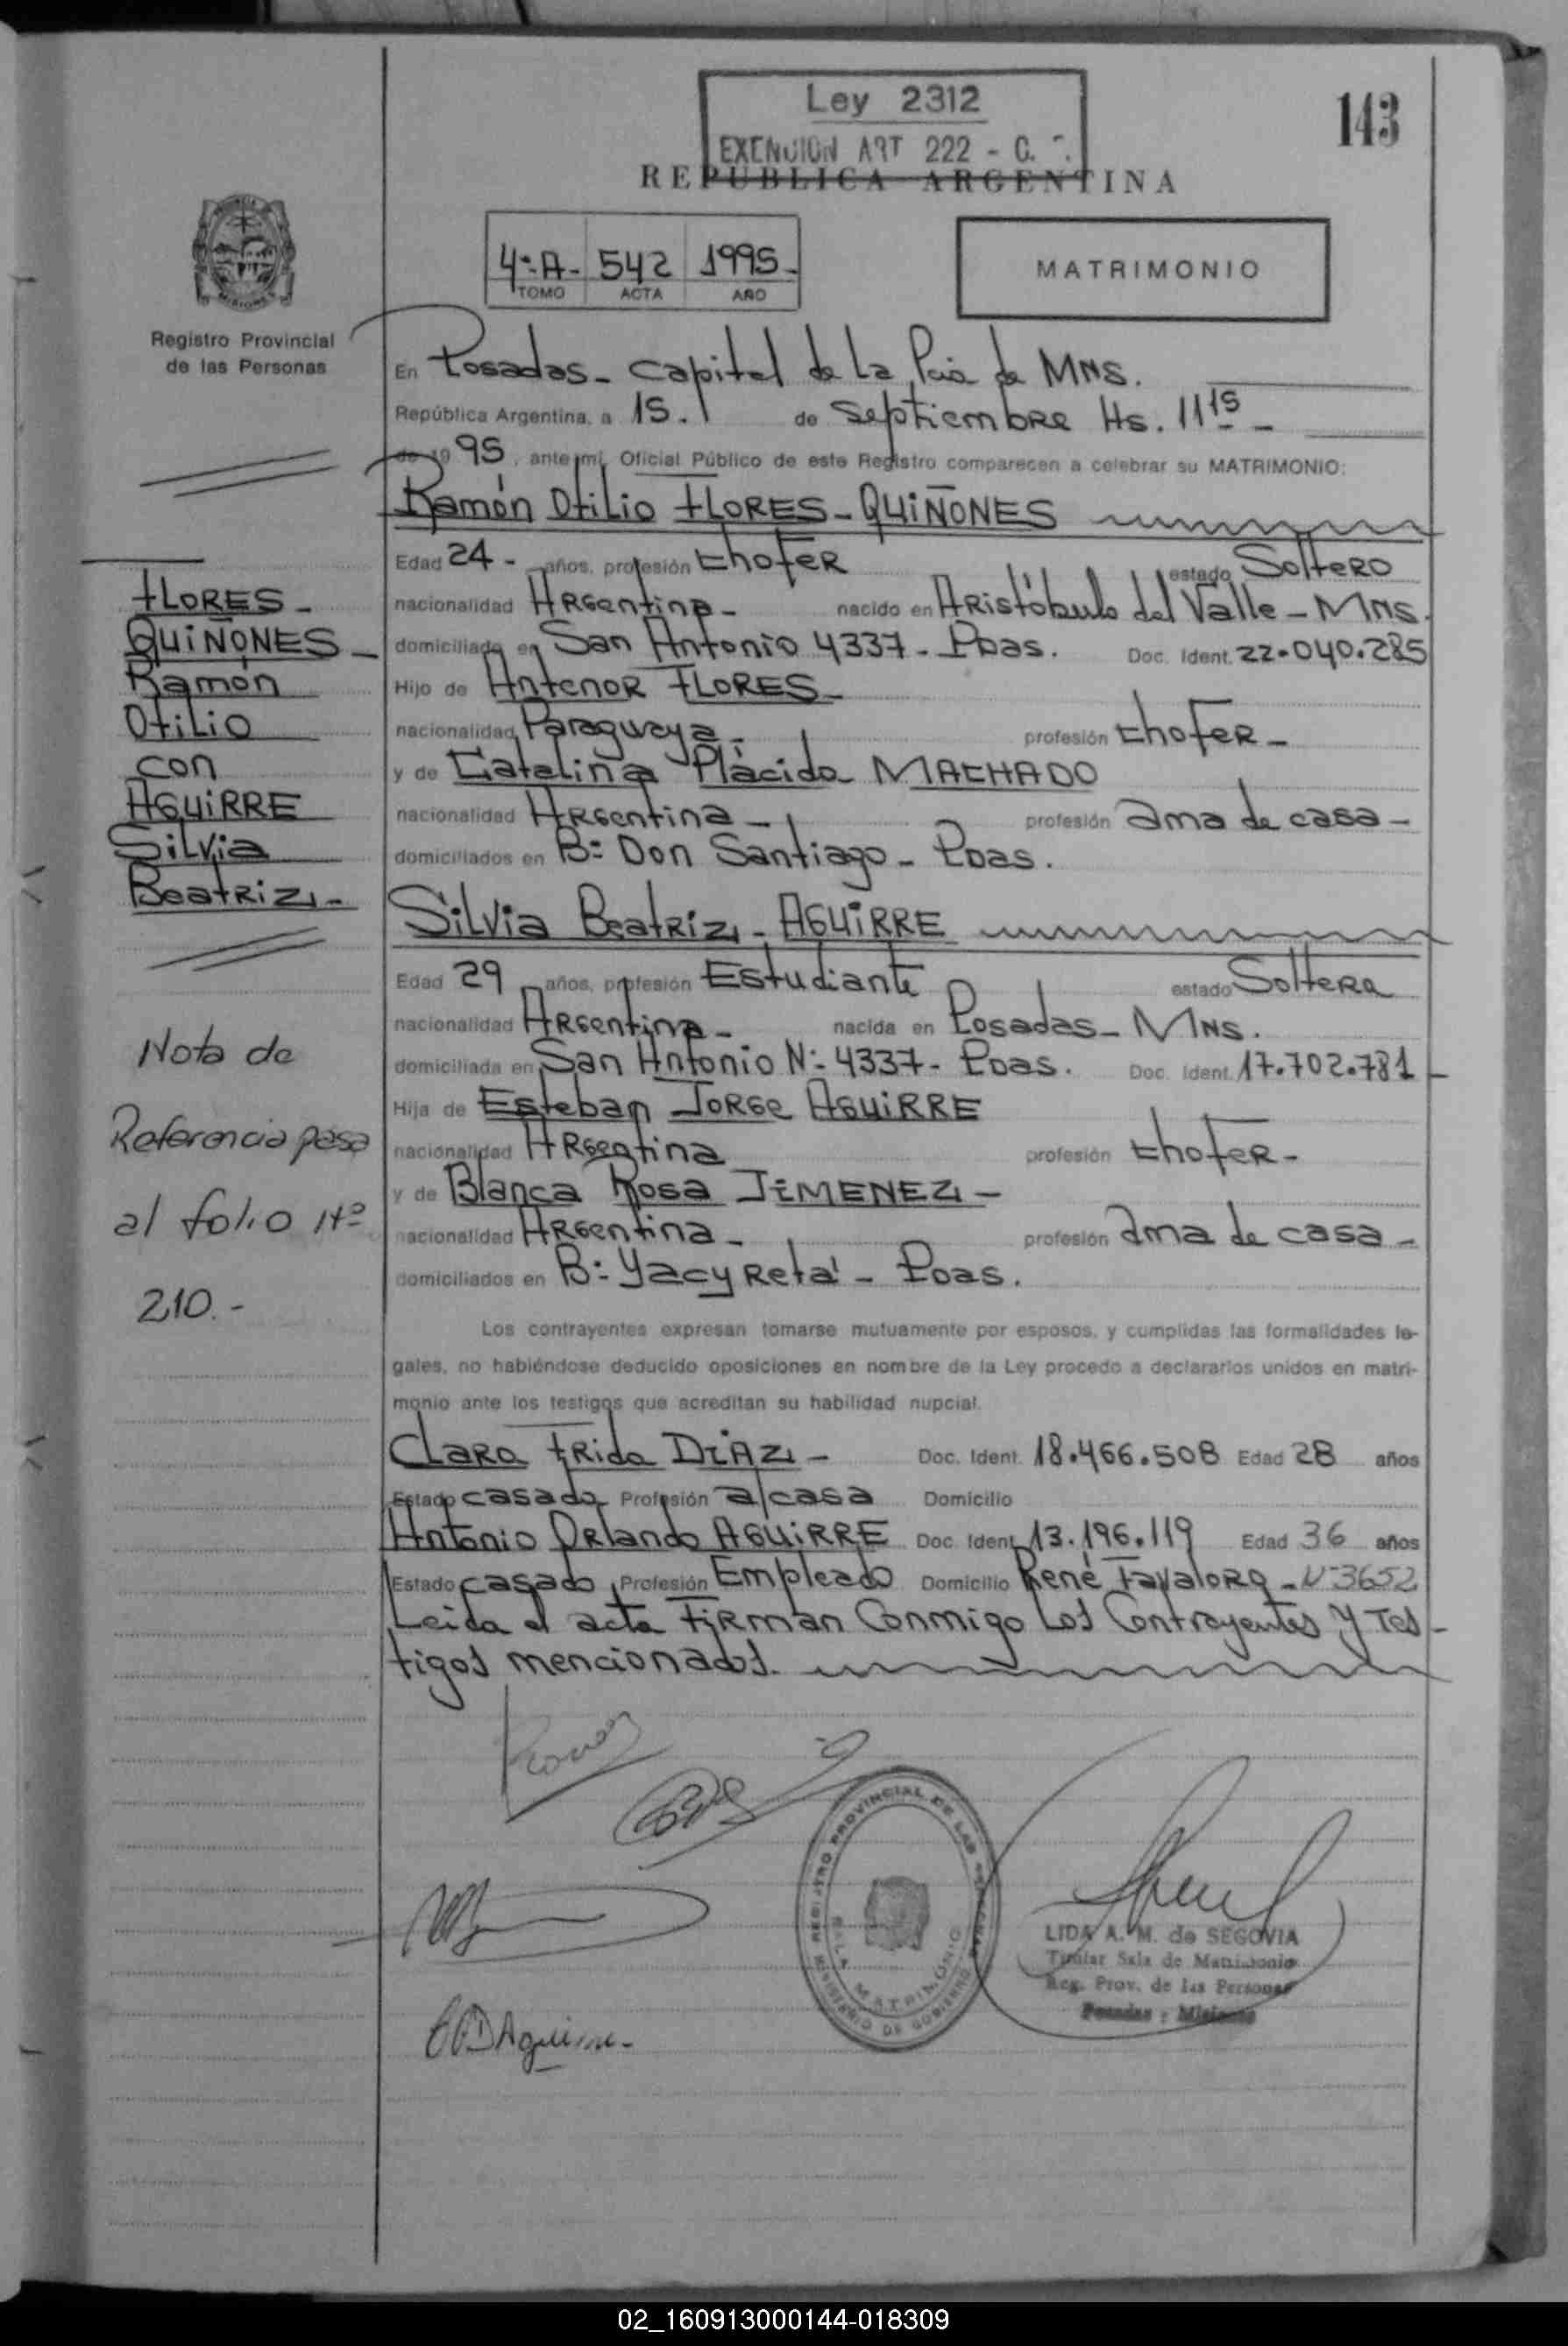 Ley 2312
EXENCION ART 222 - C.
143
REPUBLICA ARGENTINA
4º-A- 542 1995-
TOMO ACTA AÑO
MATRIMONIO
Registro Provincial
de las Personas
En Posadas - Capital de La Pcia de MNS.
República Argentina, a 15. de Septiembre Hs. 11 15 -
de 19 95, ante mí, Oficial Público de este Registro comparecen a celebrar su MATRIMONIO:
Ramón Otilio FLORES - QUIÑONES
Edad 24 - años, profesión Chofer estado Soltero
nacionalidad Argentina - nacido en Aristóbulo del Valle - MNS.
domiciliado en San Antonio 4337 - Pdas. Doc. Ident. 22.040.285
Hijo de Antenor FLORES -
nacionalidad Paraguaya - profesión Chofer -
y de Catalina Plácida MACHADO
nacionalidad Argentina - profesión ama de casa -
domiciliados en Bº Don Santiago - Pdas.
Silvia Beatriz - AGUIRRE
Edad 29 años, profesión Estudiante estado Soltera
nacionalidad Argentina - nacida en Posadas - MNS.
domiciliada en San Antonio Nº 4337 - Pdas. Doc. Ident. 17.702.781 -
Hija de Esteban Jorge AGUIRRE
nacionalidad Argentina profesión Chofer -
y de Blanca Rosa JIMENEZ -
nacionalidad Argentina - profesión ama de casa -
domiciliados en Bº Yacyretá - Pdas.
Los contrayentes expresan tomarse mutuamente por esposos, y cumplidas las formalidades le-
gales, no habiéndose deducido oposiciones en nombre de la Ley procedo a declararlos unidos en matri-
monio ante los testigos que acreditan su habilidad nupcial.
Clara Frida DIAZ - Doc. Ident. 18.466.508 Edad 28 años
Estado casada Profesión a/casa Domicilio
Antonio Orlando AGUIRRE Doc. Ident. 13.196.119 Edad 36 años
Estado casado Profesión Empleado Domicilio René Favaloro - Nº 3652
Leida el acta Firman Conmigo Los Contrayentes y Tes-
tigos mencionados.
FLORES -
QUIÑONES -
Ramón
Otilio
con
AGUIRRE
Silvia
Beatriz -
Nota de
Referencia pasa
al folio Nº
210.-
REGISTRO PROVINCIAL DE LAS PERSONAS
SALA MATRIMONIO
MINISTERIO DE GOBIERNO
Aguirre -
LIDA A. M. de SEGOVIA
Titular Sala de Matrimonio
Reg. Prov. de las Personas
Posadas - Misiones
02_160913000144-018309